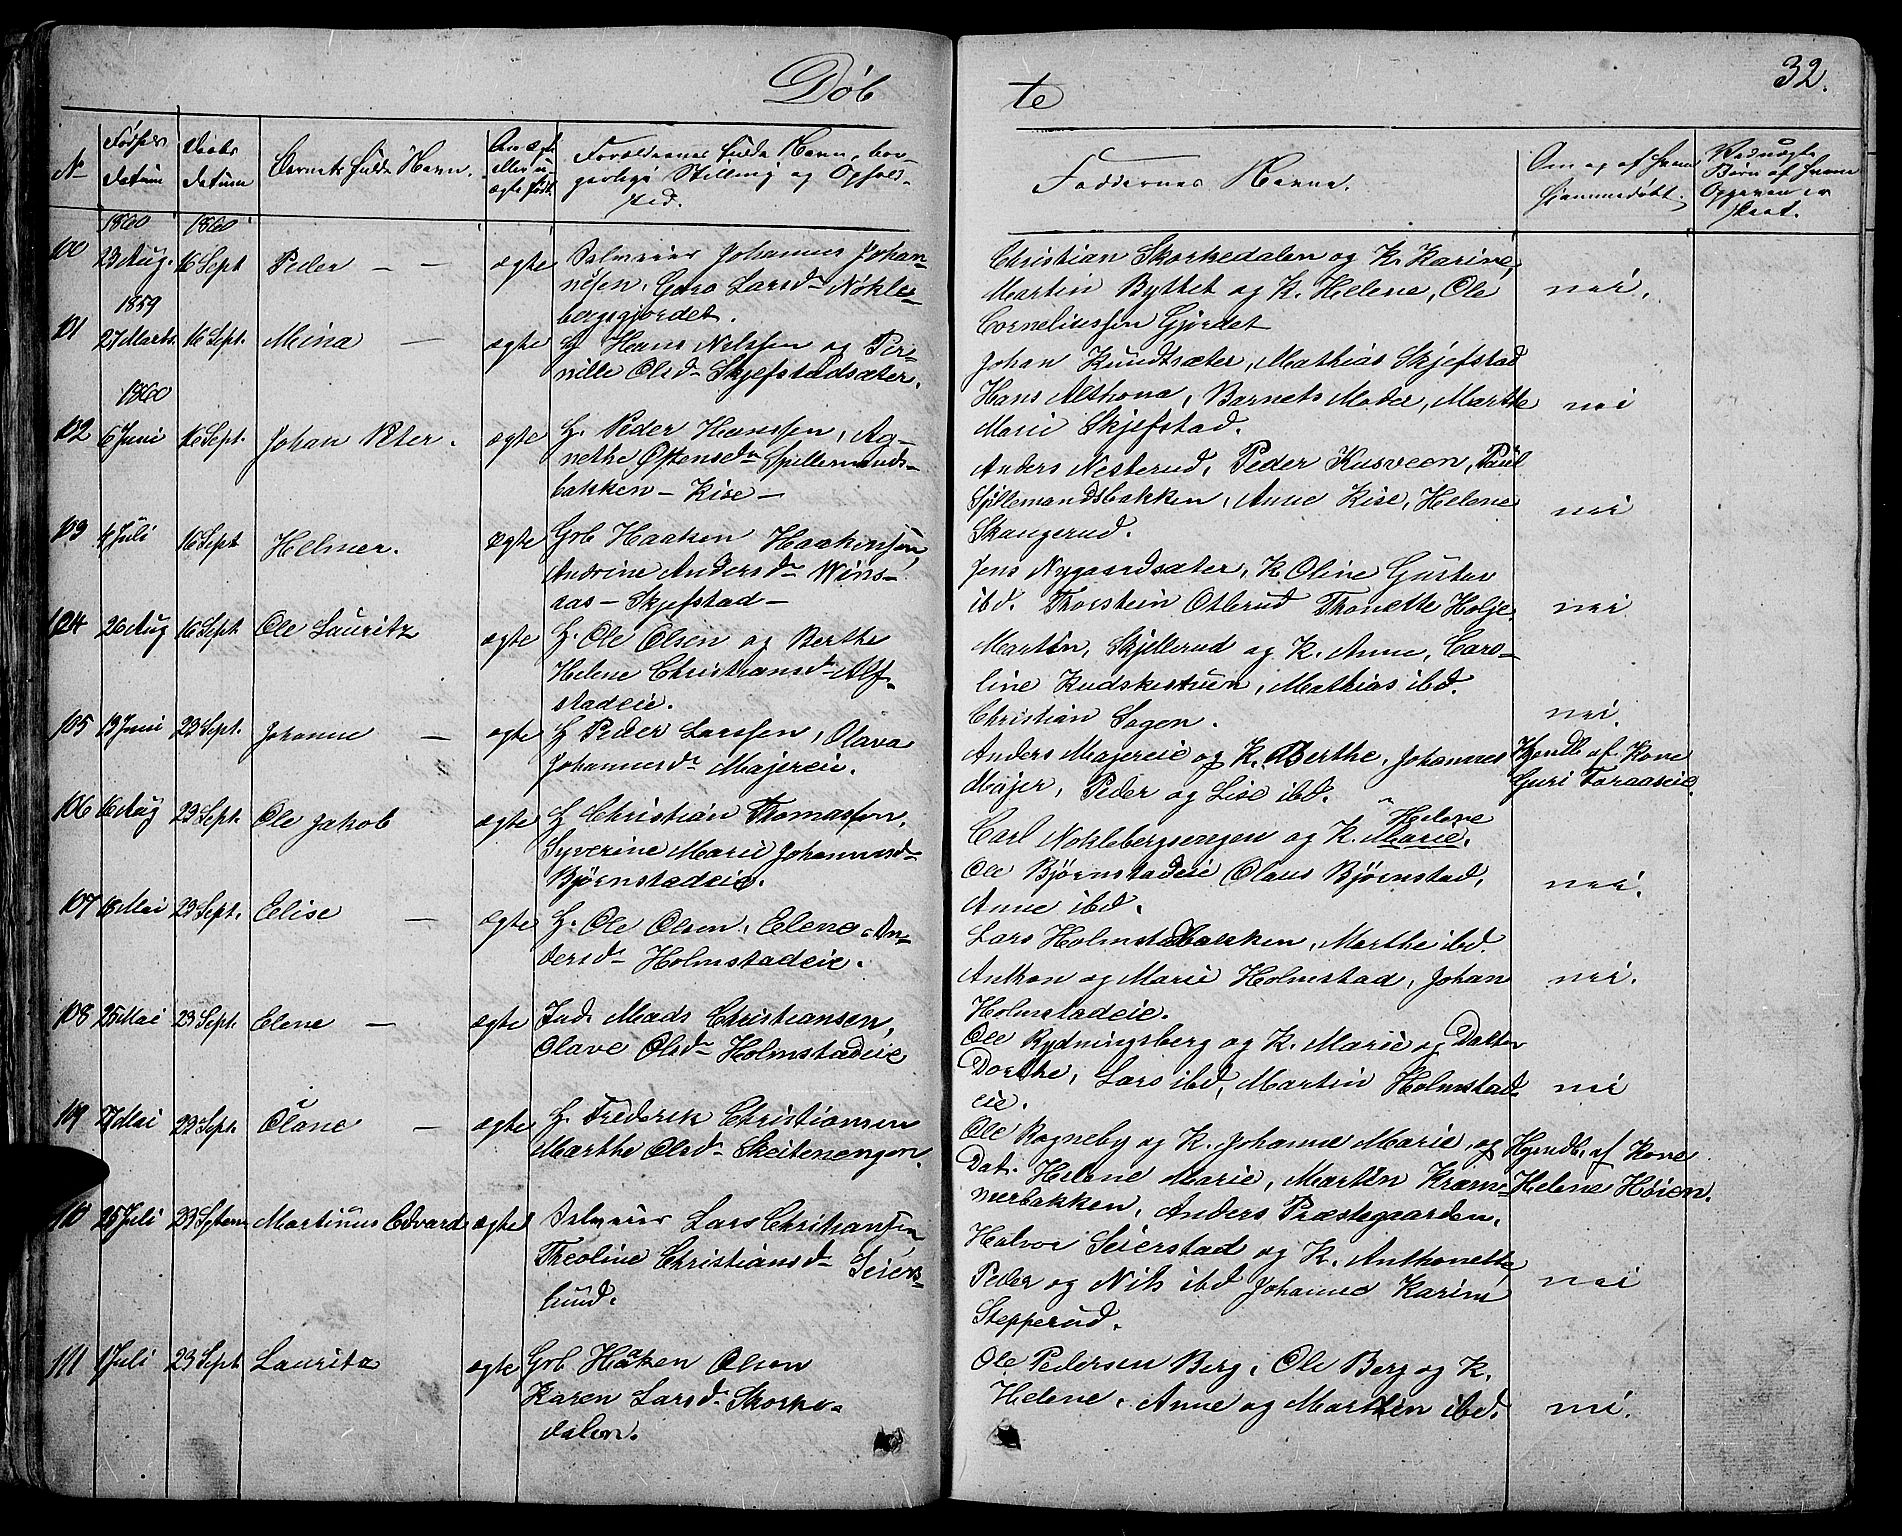 Døb
te
32.
N.
Fødsels
datum
Daabs
datum
Barnets fulde Navn.
Om ægte
eller u-
ægte født.
Forældrenes fulde Navn, bor-
gerlige Stilling og Ophold-
sted.
Faddernes Navne.
Om og af hvem
hjemmedøbt.
Børn af hvem
Opgaven er
skeet.
1860
1860
100
23 Aug.
16 Sept
Peder — —
ægte
Selveier Johannes Johan-
nesen, Goro Larsd. Nøkle-
bergsgjordet.
Christian Skorkedalen og K. Karine,
Martin Byttet og K. Helene, Ole
Corneliussen Gjørdet
nei.
1859
101
27 Marts
16 Sept.
Mina —
ægte
H. Hans Nelssen og Per-
nille Olsd. Skjefstadsæter.
Johan Kundtsæter, Mathias Skjefstad
Hans Althona, Barnets Moder, Marthe
Marie Skjefstad.
nei
1860
102
6 Juni
16 Sept.
Johan Peter.
ægte
H. Peder Hanssen, Ag-
nethe Østensed. Spillemands-
bakken — Kise —
Anders Nesterud, Peder Kusveen, Paul
Spillemandsbakken, Anne Kise, Helene
Skaugerud.
nei
103
4 Juli
16 Sept
Helmer.
ægte
Grb. Haaken Haakensen,
Andrine Andersd. Wins-
aas — Skjefstad —
Jens Nygaardsæter, K. Oline Gustav
ibd. Thorstein Otlerud Thonette Holje.
nei
104
26 Aug
16 Sept
Ole Lauritz
ægte
H. Ole Olsen og Berthe
Helene Christiansd. Alf-
stadeie.
Martin, Skjellerud og K. Anne, Caro-
line Kudskestuen, Mathias ibd.
Christian Sagen.
nei.
105
13 Juni
23 Sept.
Johanne —
ægte
H. Peder Larssen, Olava
Johannesd. Majereie.
Anders Majereie og K. Berthe, Johannes
Majer, Peder og Lise ibd.
Hjemdb. af Kone
Guri Foraaseie.
106
16 Aug
23 Sept.
Ole Jakob
ægte
H. Christian Thomassen,
Syverine Marie Johannesd.
Bjørnstadeie.
Helene
Carl Noklebergsengen og K. Marie.
Ole Bjørnstadeie Olaus Bjørnstad,
Anne ibd.
nei.
107
18 Mai
23 Sept.
Elise —
ægte
H. Ole Olsen, Elene An-
dersd. Holmstadeie.
Lars Holmstadbakken, Marthe ibd.
Anthon og Marie Holmstad, Johan
Holmstadeie.
nei.
108
25 Mai
23 Sept.
Elene —
ægte
Ind. Mads Christiansen,
Olave Olsd. Holmstadeie
Ole Rydningsberg og K. Marie og Datter
Dorthe, Lars ibd, Martin Holmstad-
eie.
nei
109
27 Mai
23 Sept.
Olane —
ægte
H. Frederik Christiansen
Marthe Olsd. Skeitenengen.
Ole Rogneby og K. Johanne Marie, og
Dat. Helene Marie, Martin Kram-
merbakken, Anders Præstegaarden.
Hjemdb. af Kone
Helene Høien.
110
25 Juli
23 Septem
Martinus Edvard
ægte
Selveier Lars Christiansen
Theoline Christiansd. Seiers-
lund.
Halvor Seierstad og K. Anthonette,
Peder og Nils ibd Johanne Karine
Stepperud.
nei
111
1 Juli
23 Sept
Lauritz
ægte
Grb. Haaken Olson
Karen Larsd. Skorke-
dalen.
Ole Pedersen Berg, Ole Berg og K.
Helene, Anne og Marthin ibd.
nei.